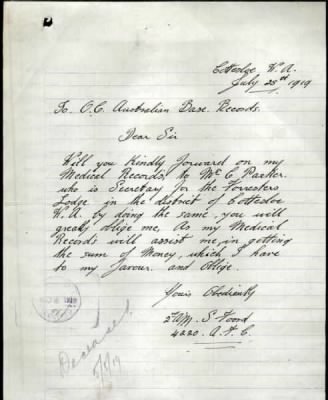 Cottesloe W. A.
July 28th 1919
To. O.C. Australian Base Records.
Dear Sir
Will you Kindly forward on my
Medical Records to Mr C Parker.
who is Secretary for the Forresters
Lodge in the district of Cottesloe
W. A. by doing the same, you will
greatly oblige me, As my Medical
Records will assist me, in getting
the sum of Money, which I have
in my favour. and Oblige.
Yours Obediently
2/AM. S Foord
4220. A. F. C.